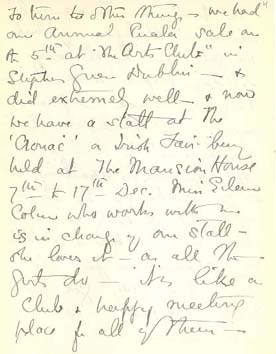 To turn to other things – we had
our Annual Cuala sale on
the 5th at "The Arts Club" in
Stephens Green Dublin – &
did extremely well – & now
we have a stall at The
'Aonac' a Irish Fair being
held at The Mansion House
7th to 17th Dec. Miss Eileen
Colum who works with me
is in charge of our stall –
she loves it – as all the
girls do – it is like a
Club & happy meeting
place for all of them –